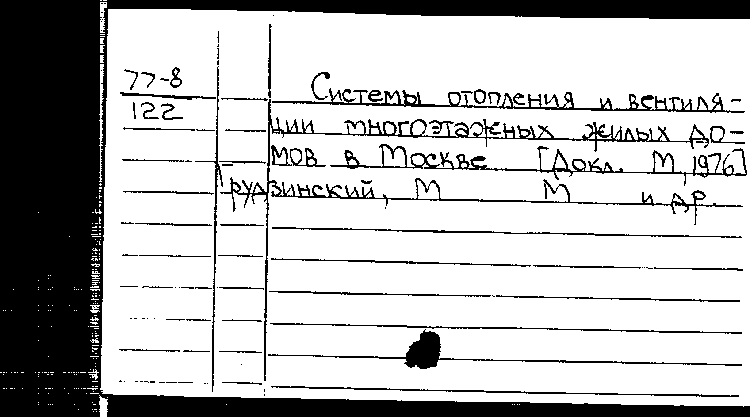 77-8
122
Системы отопления и вентиля-
ции многоэтажных жилых до-
мов в Москве [Докл. М, 1976]
Грудзинский, М М и др.